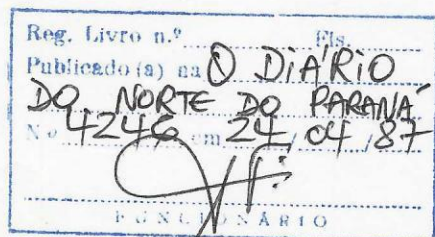 Reg. Livro n.º Fls.
Publicado (a) na O DIÁRIO
DO NORTE DO PARANÁ
N.º 4246 em 24/04/87
FUNCIONÁRIO